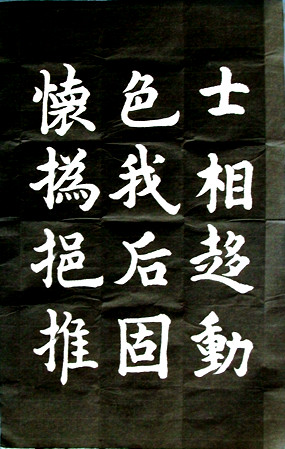 士相趍動
色我后固
懐撝挹推